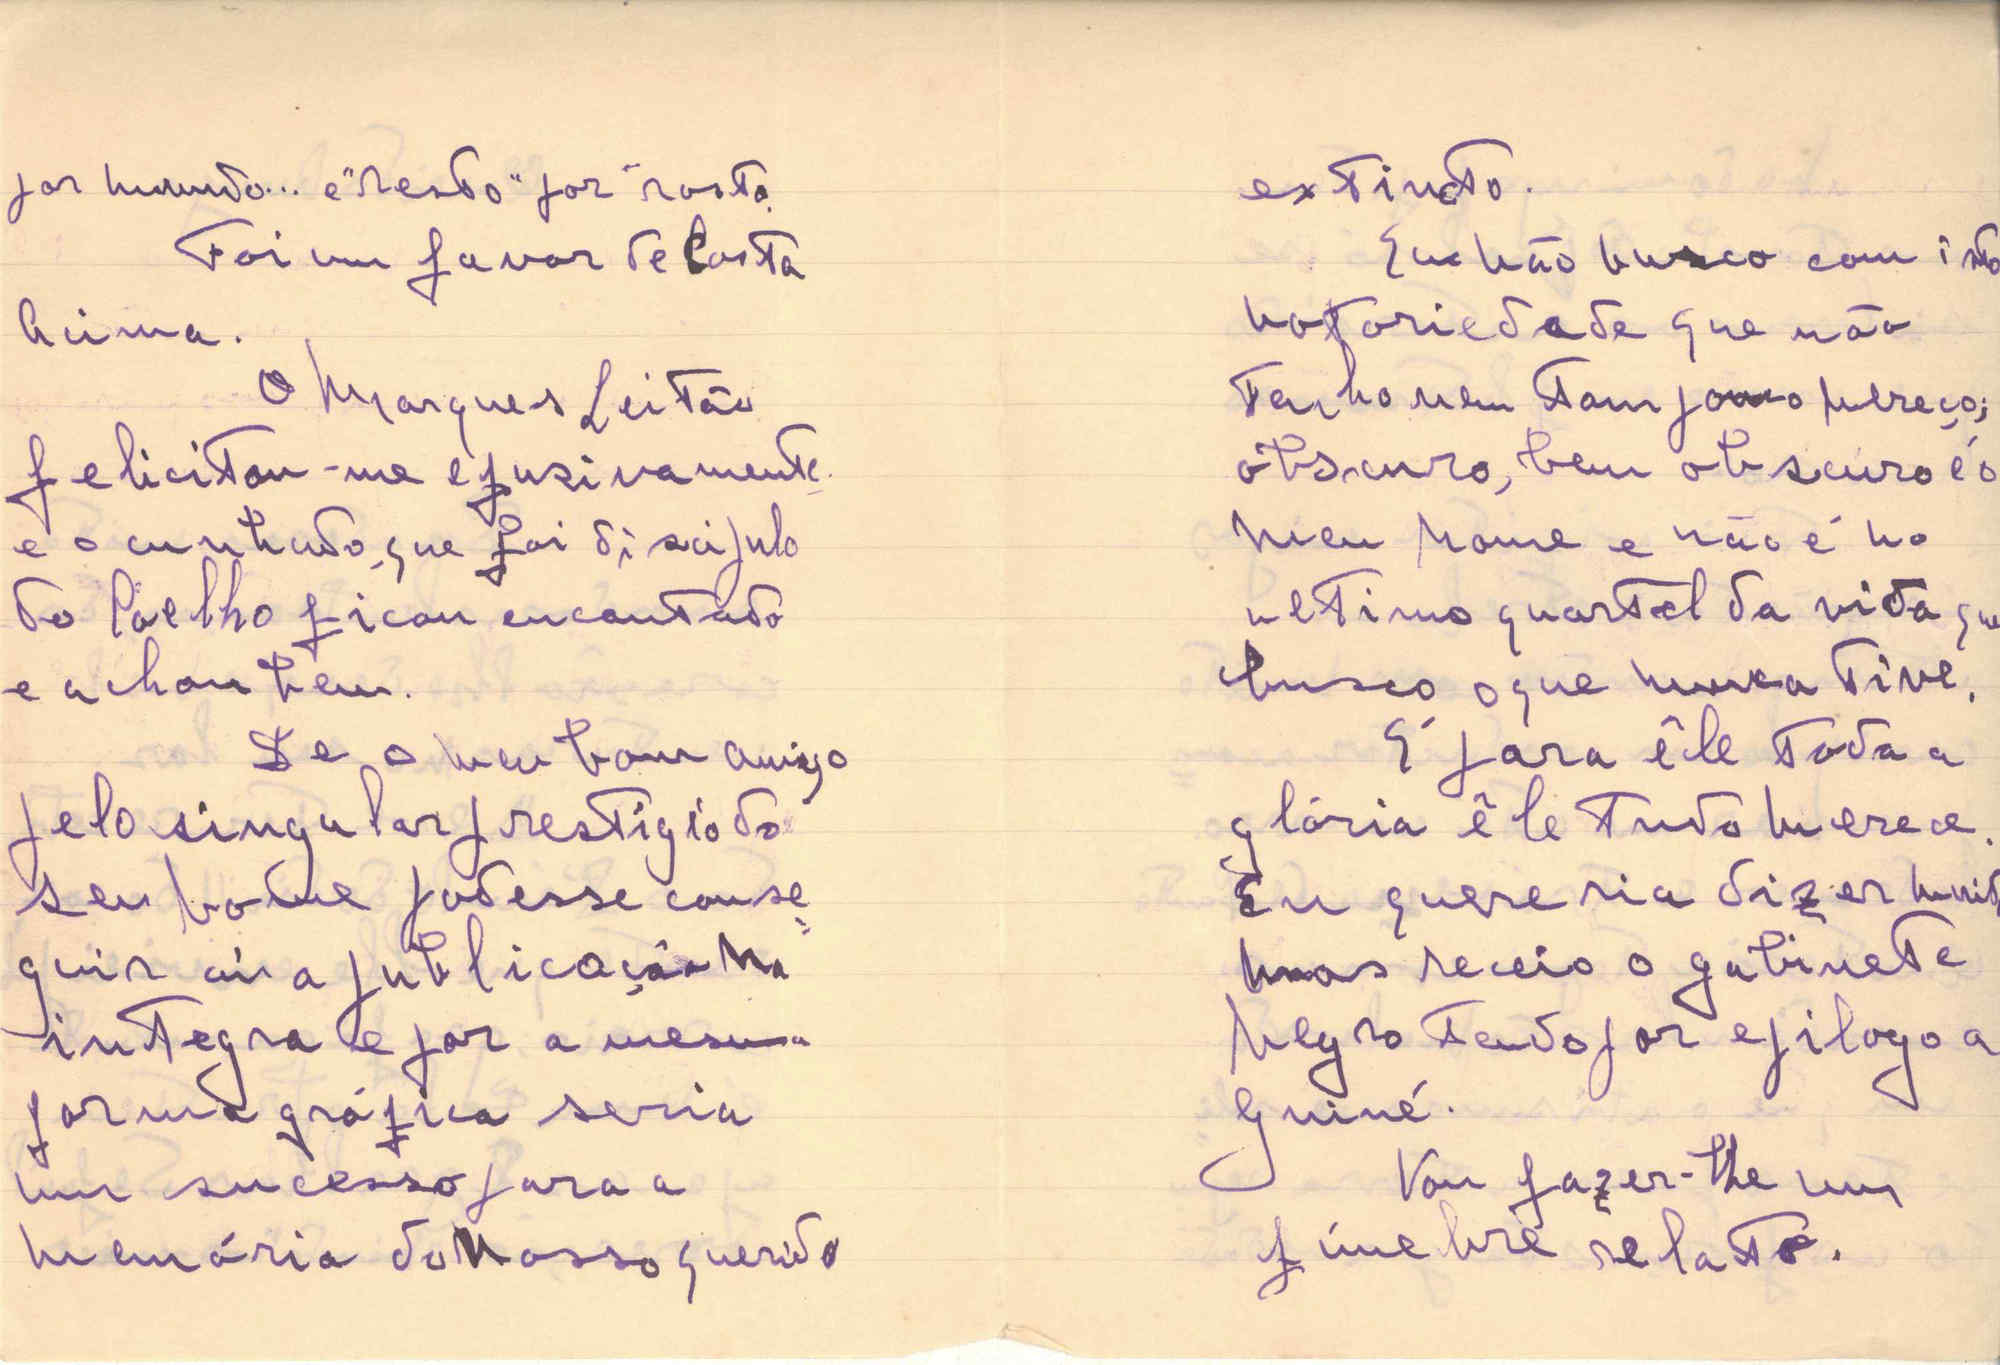 por mundo... e "resto" por "rosto.
Foi um favor de Costa
Lima.
O Marques Leitão
felicitou-me efusivamente
e o cunhado, que foi discipulo
do Coelho ficou encantado
e achou bem.
Se o meu bom amigo
pelo singular prestigio do
seu nome podesse conse
guir aí a publicação na
integra e por a mesma
forma gráfica seria
um sucesso para a
memória do nosso querido
extincto.
Eu não busco com isto
notoriedade que não
tenho nem tam pouco mereço;
obscuro, bem obscuro é o
meu nome e não é no
ultimo quartel da vida que
busco o que nunca tive.
É para êle toda a
glória êle tudo merece.
Eu quereria dizer muito
mas receio o gabinete
negro tendo por epilogo a
Guiné.
Vou fazer-lhe um
fúnebre relato.